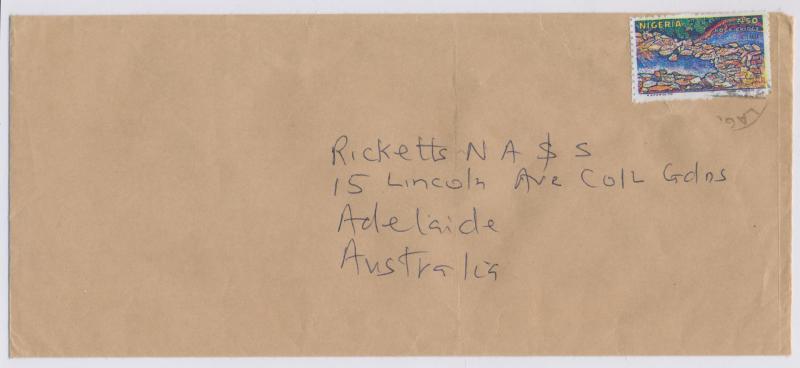 NIGERIA ₦50
Ricketts N A $ S
15 Lincoln Ave Coll Gdns
Adelaide
Australia
LAG